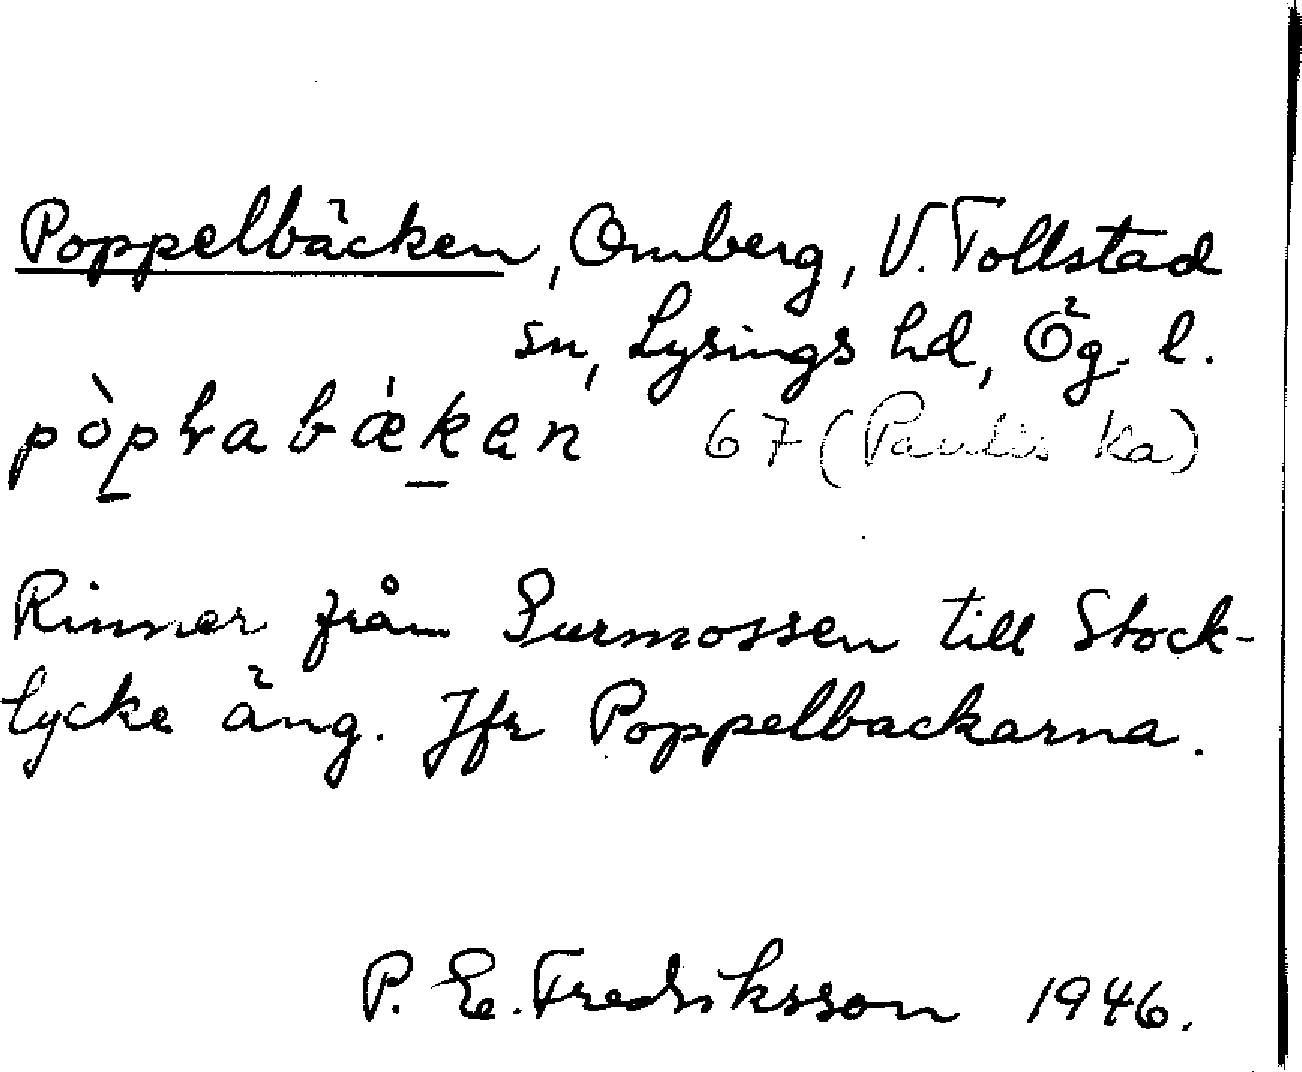 Poppelbäcken, Omberg, V. Tollstad
sn, Lysings hd, Ög. l.
pòpɽabæken 67 (Paulis ka)
Rinner från Surmossen till Stock-
lycke äng. Jfr Poppelbackarna.
P. E. Fredriksson 1946.